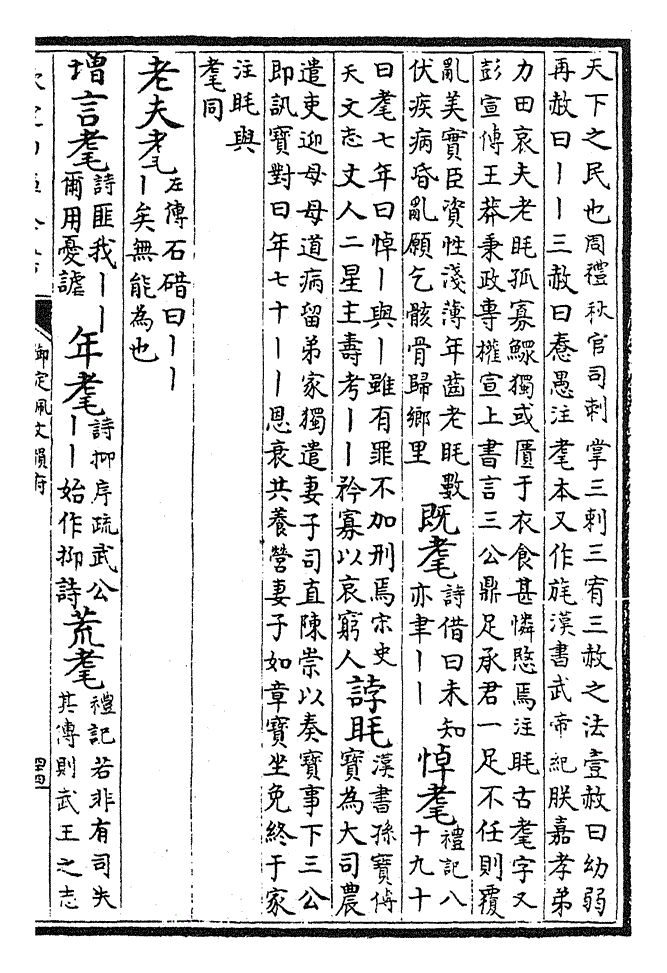 天下之民也周禮秋官司刺掌三刺三宥三赦之法壹赦曰幼弱
再赦曰丨丨三赦曰惷愚注耄本又作旄漢書武帝紀朕嘉孝弟
力田哀夫老眊孤寡鰥獨或匱于衣食甚憐愍焉注眊古耄字又
彭宣傳王莽秉政專權宣上書言三公鼎足承君一足不任則覆
亂美實臣資性淺薄年齒老眊數
伏疾病昏亂願乞骸骨歸鄉里
既耄
詩借曰未知
亦聿丨丨
悼耄
禮記八
十九十
曰耄七年曰悼丨與丨雖有罪不加刑焉宋史
天文志丈人二星主壽考丨丨矜寡以哀窮人
誖眊
漢書孫寶傳
寶為大司農
遣吏迎母母道病留弟家獨遣妻子司直陳崇以奏寶事下三公
即訊寶對曰年七十丨丨恩衰共養營妻子如章寶坐免終于家
注眊與
耄同
老夫耄
左傳石碏曰丨丨
丨矣無能為也
增言耄
詩匪我丨丨
爾用憂謔
年耄
詩抑序疏武公
丨丨始作抑詩
荒耄
禮記若非有司失
其傳則武王之志
御定佩文韻府